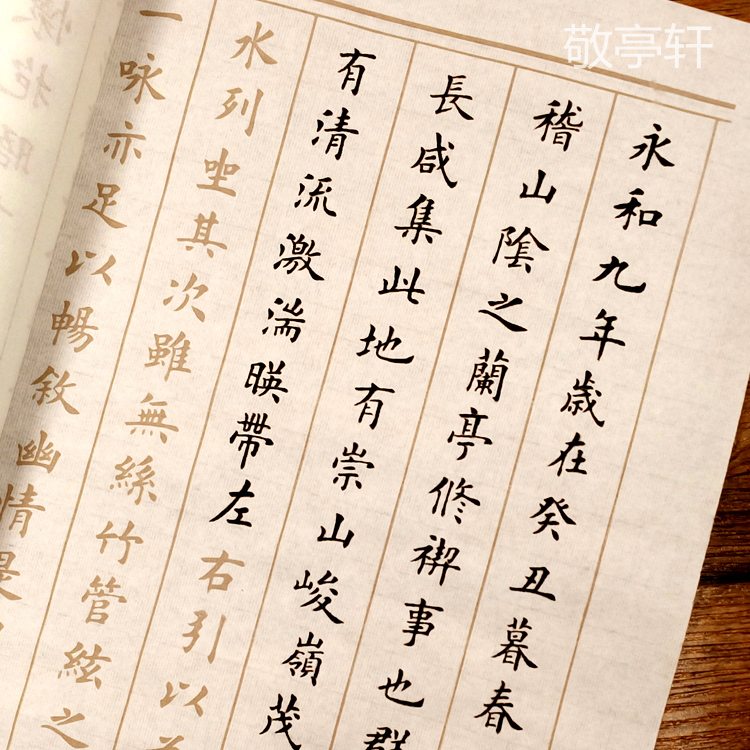 敬亭轩
永和九年歲在癸丑暮春
稽山陰之蘭亭修禊事也群
長咸集此地有崇山峻嶺茂
有清流激湍暎帶左右引以
水列坐其次雖無絲竹管絃之
一咏亦足以暢敘幽情是
懷抱